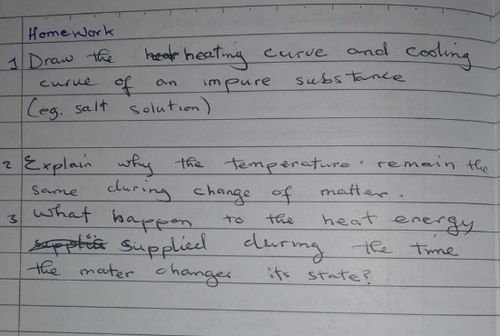 HomeWork
1 Draw the heat heating curve and cooling
curve of an impure substance
(eg. salt solution)
2 Explain why the temperature remain the
same during change of matter.
3 What happen to the heat energy
supplied during the time
the mater changes its state?